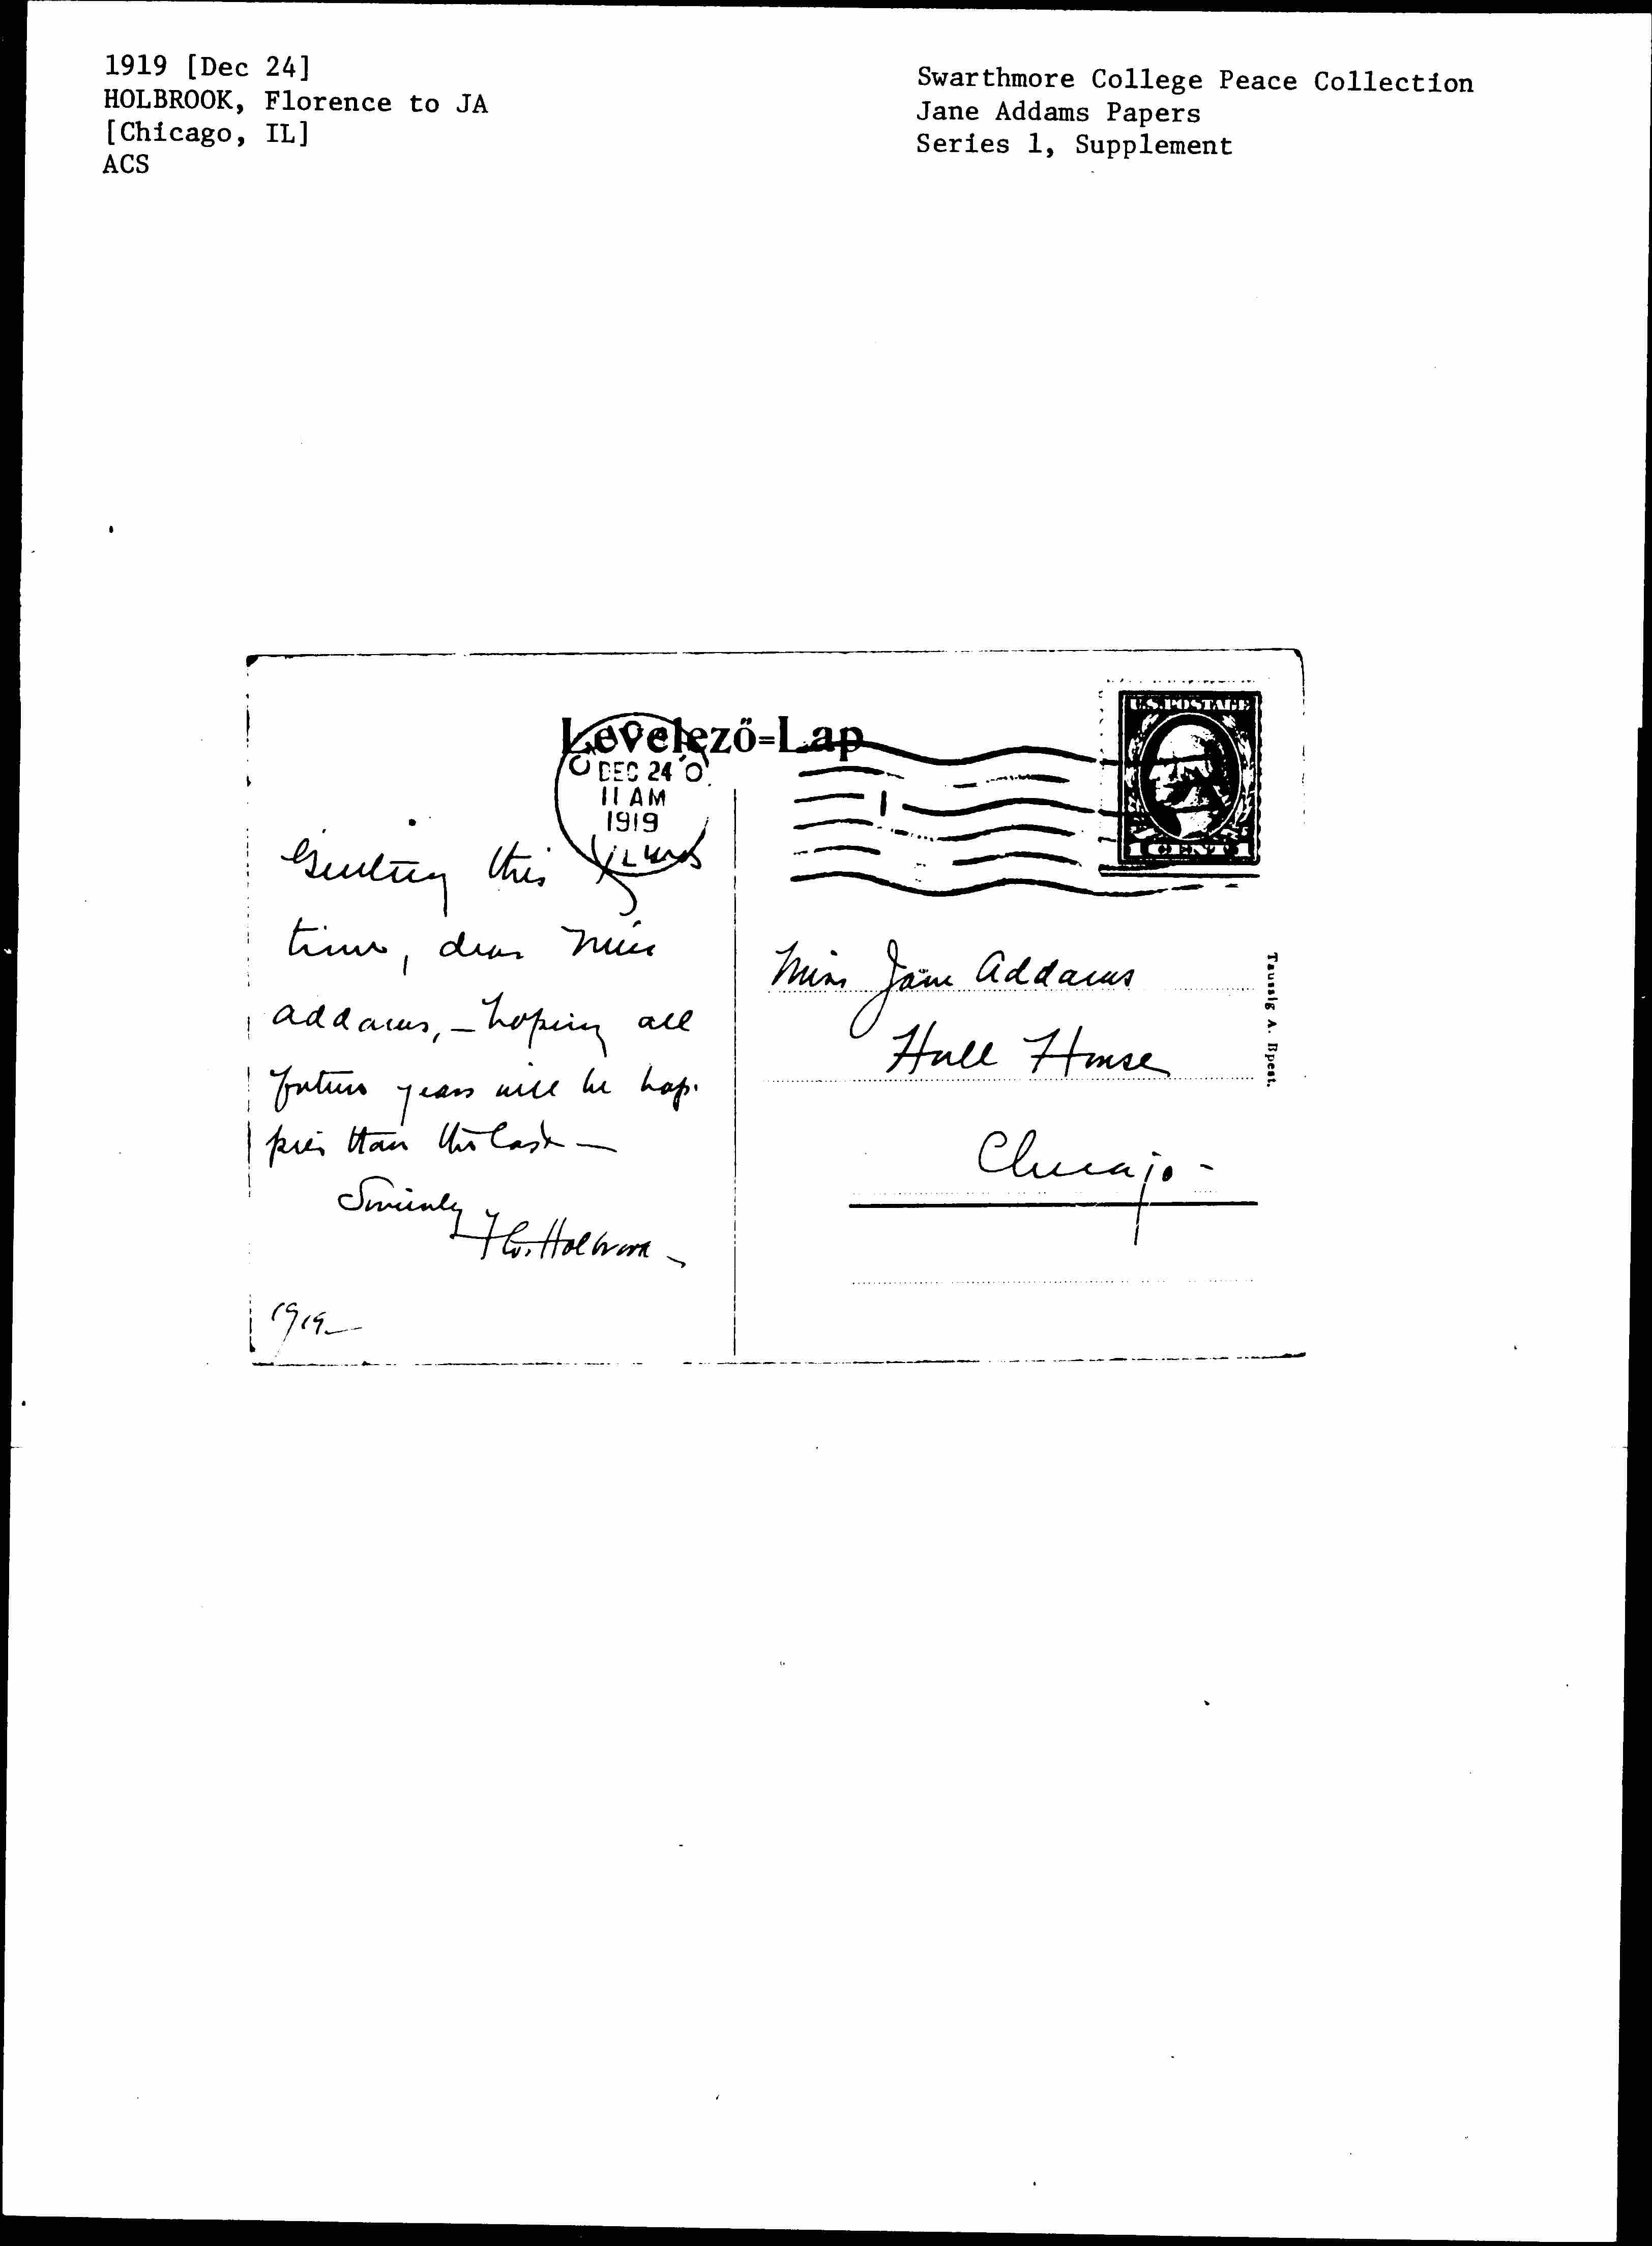 1919 [Dec 24]
HOLBROOK, Florence to JA
[Chicago, IL]
ACS
Swarthmore College Peace Collection
Jane Addams Papers
Series 1, Supplement
Levelező=Lap
DEC 24
11 AM
1919
U.S. POSTAGE
1 CENT 1
Greeting this Xmas
time, dear Miss
Addams, – hoping all
future years will be hap-
pier than this last –
Sincerely
Flo. Holbrook –
1919 –
Miss Jane Addams
Hull House
Chicago –
Taussig A. Bpest.